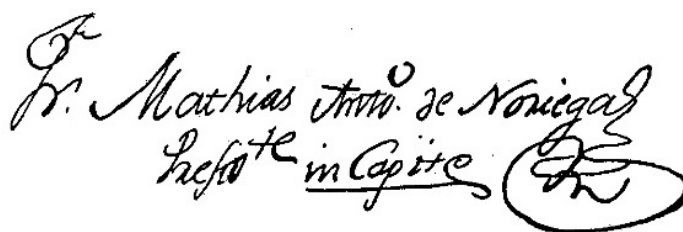 Fr. Mathias Anto. de Noriega
Presid^te in Capite